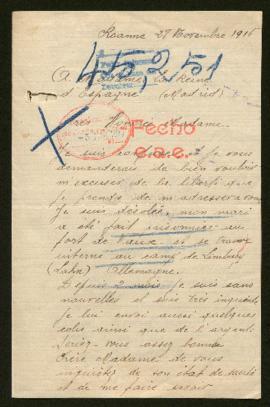 Roanne 27 Novembre 1916
45,251
A Madame La Reine
d'Espagne (Madrid)
Fecho
e.a.e.
Très Madame.
Je suis je vous
demanderais de bien vouloir
m'excuser de la liberté que
je prends de m'adresser a vous
Je suis désolée, mon mari
a été fait prisonnier au
fort de Vaux et se trouve
interné au camp de Limburg
(Lahn) Allemagne.
Depuis 2 mois je suis sans
nouvelles et suis très inquiète,
je lui envoi aussi quelques
colis ainsi que de l'argent.
Seriez-vous assez bonne
Chère Madame de vous
inquiéter de son état de santé
et de me faire savoir